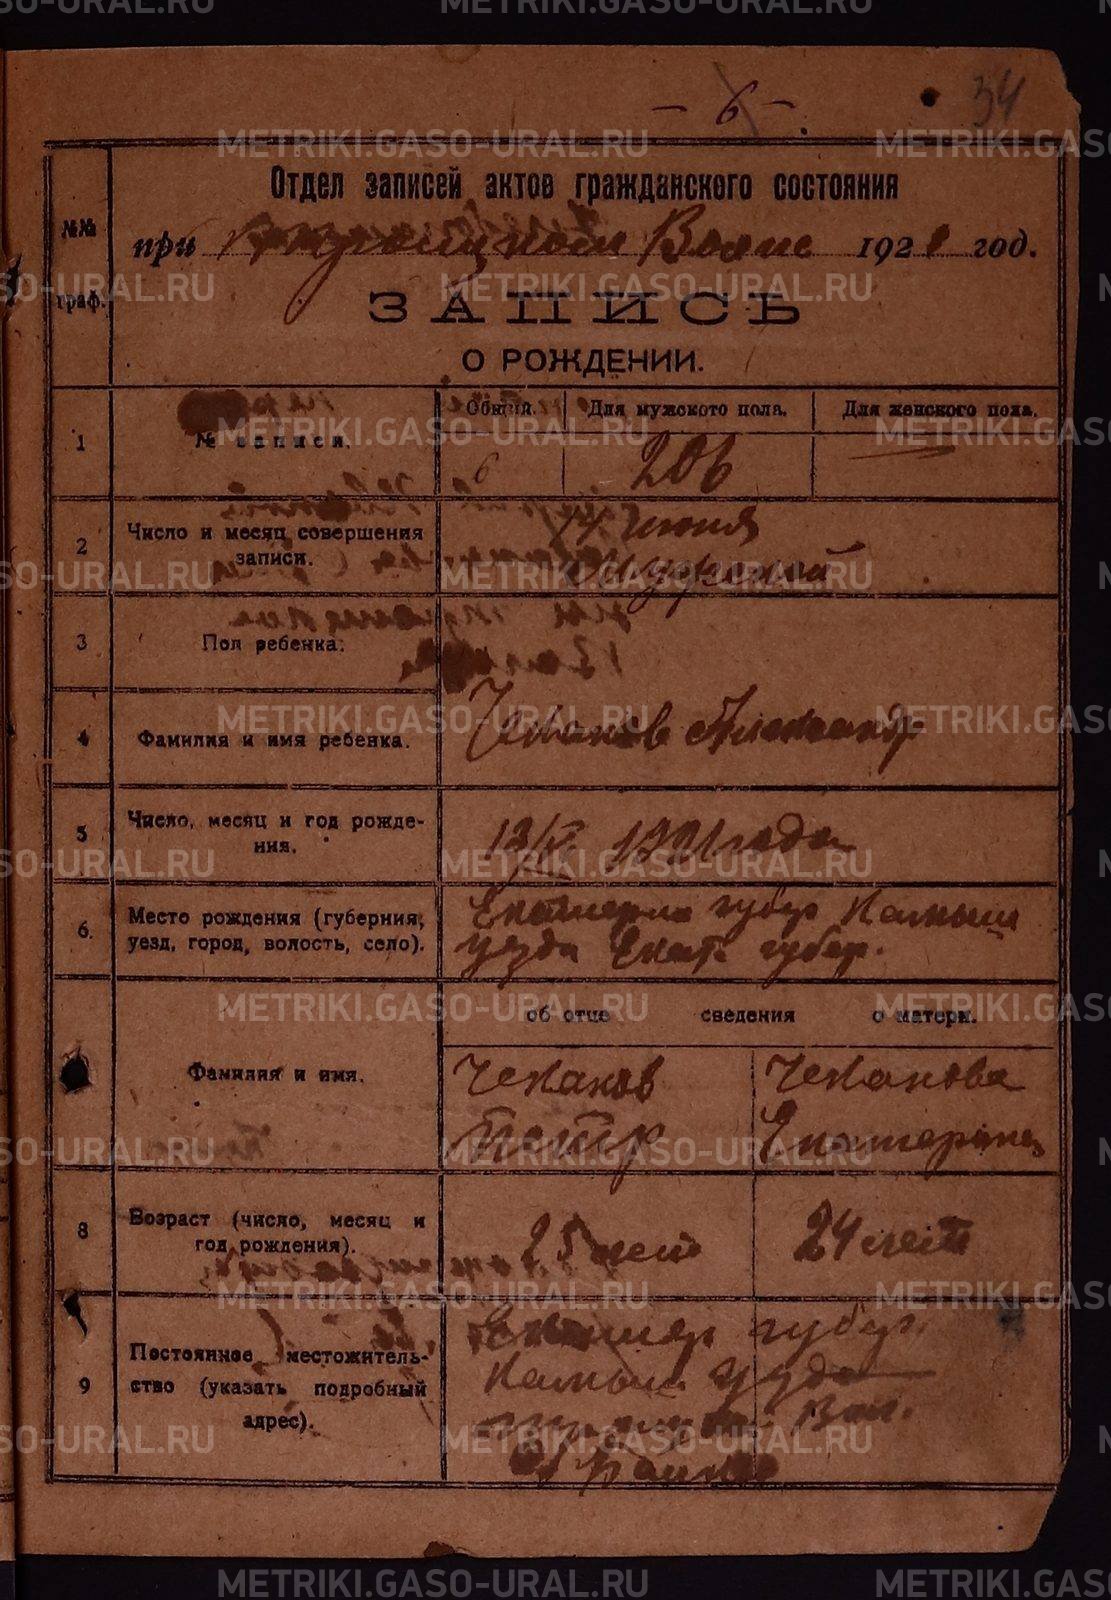 - 6 -. 34
Отдел записей актов гражданского состояния
№№ граф.
при Троицком Волис 1921 год.
ЗАПИСЬ
О РОЖДЕНИИ.
1 № записи. Общий. Для мужского пола. Для женского пола.
6 206
2 Число и месяц совершения записи. 14 июня
Мужской
3 Пол ребенка:
4 Фамилия и имя ребенка. Чеканов Александр
5 Число, месяц и год рожде-
ния. 13/VI 1921 года
6. Место рождения (губерния, Екатерин губер Камыш
уезд, город, волость, село). уезда Екат. губер.
об отце сведения о матери.
Фамилия и имя. Чеканов Чеканова
Петр Екатерина
8 Возраст (число, месяц и
год рождения). 25 лет 24 лет
9 Постоянное местожитель-
ство (указать подробный
адрес).
Екатер губер.
Камыш уезда
Вол.
METRIKI.GASO-URAL.RU